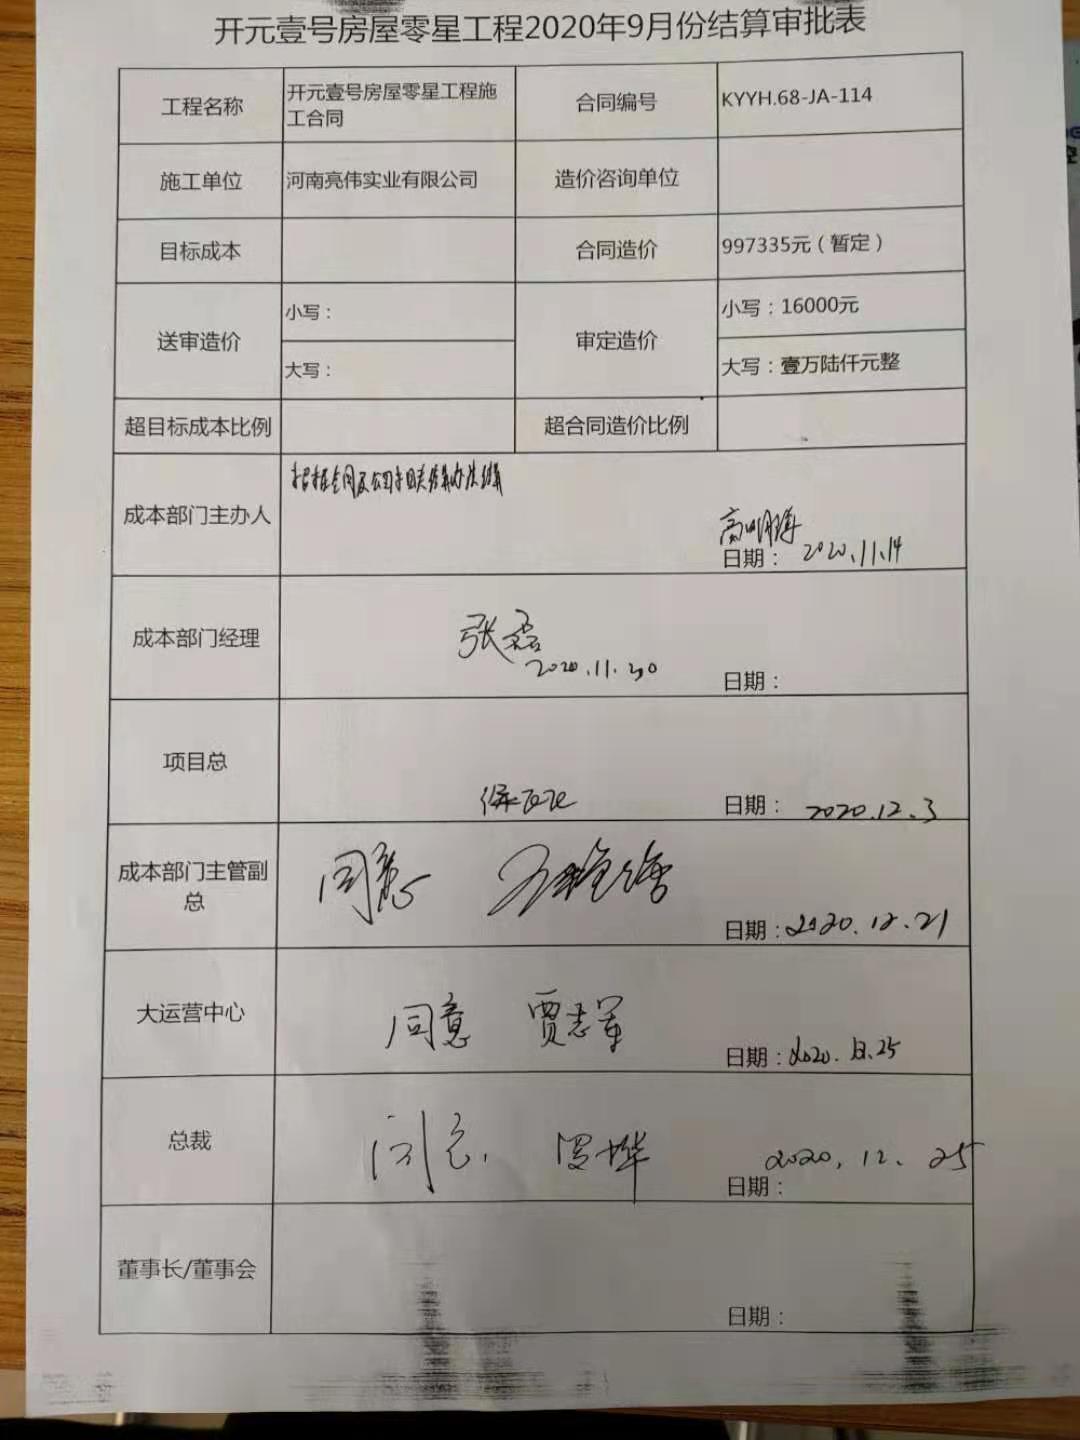 开元壹号房屋零星工程2020年9月份结算审批表
工程名称
开元壹号房屋零星工程施
工合同
合同编号
KYYH.68-JA-114
施工单位
河南亮伟实业有限公司
造价咨询单位
目标成本
合同造价
997335元（暂定）
送审造价
小写：
大写：
审定造价
小写：16000元
大写：壹万陆仟元整
超目标成本比例
超合同造价比例
成本部门主办人
日期： 2020.11.14
成本部门经理
张磊
2020.11.30
日期：
项目总
日期： 2020.12.3
成本部门主管副
总
同意
日期：2020.12.21
大运营中心
同意 贾志军
日期：2020.12.25
总裁
同意 罗烨
2020.12.25
日期：
董事长/董事会
日期：